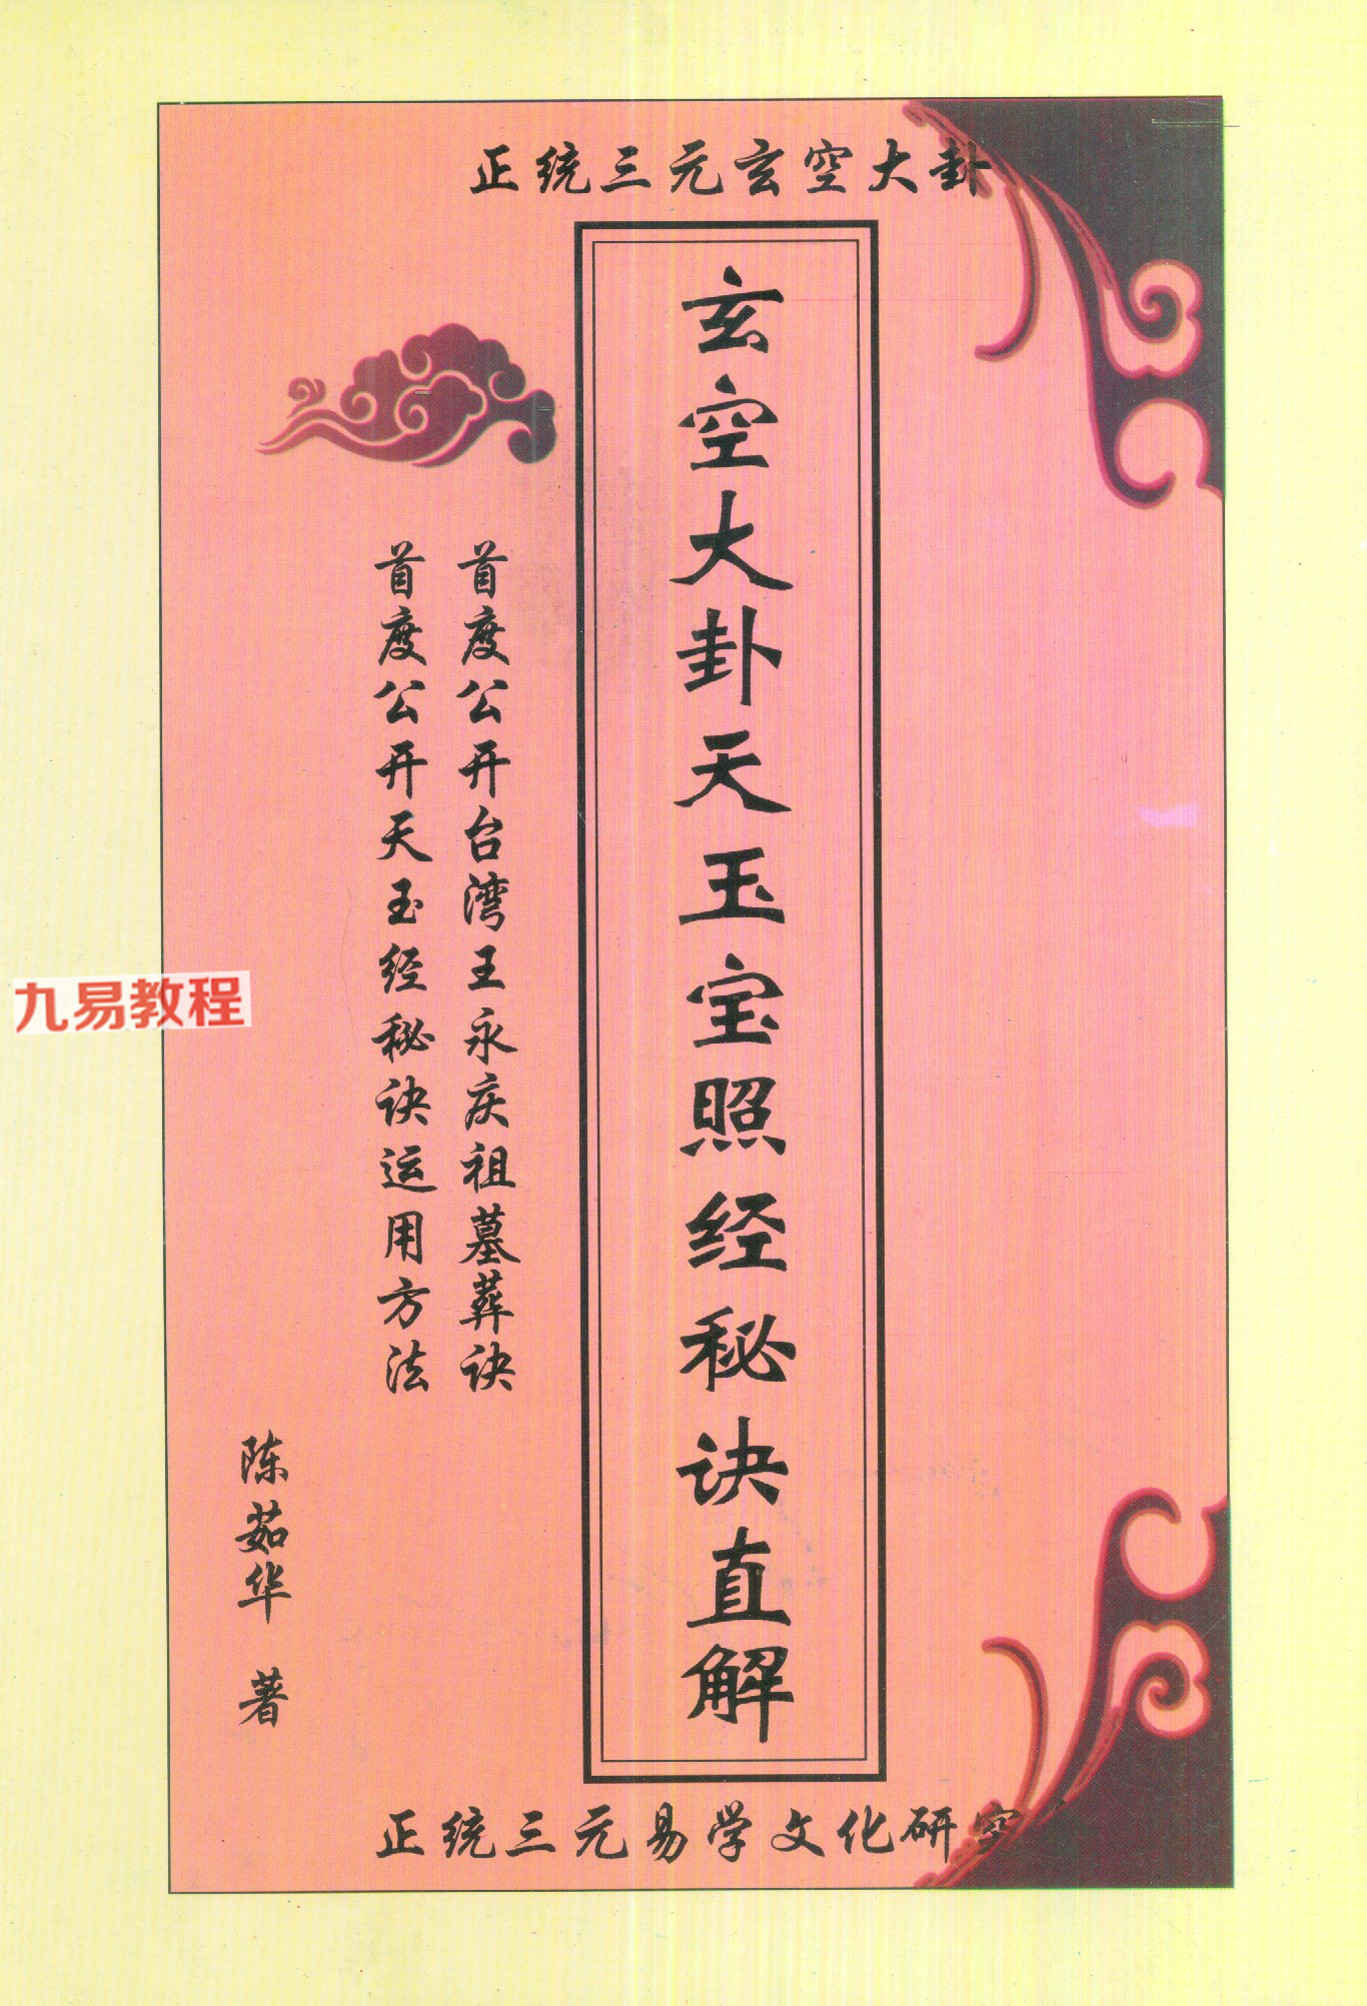 正统三元玄空大卦
玄空大卦天玉宝照经秘诀直解
首度公开台湾王永庆祖墓葬诀
首度公开天玉经秘诀运用方法
陈茹华 著
正统三元易学文化研究
九易教程